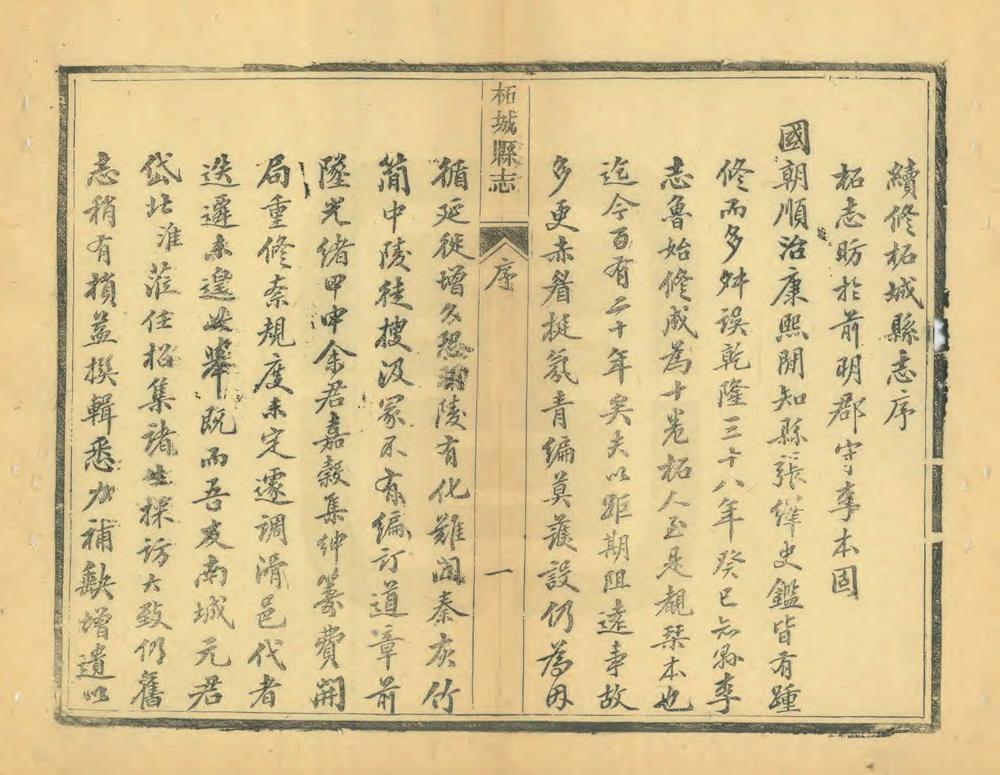 續修柘城縣志序
柘志昉於前明郡守李本固
國朝順治康熙間知縣張緯史鑑皆有踵
修而多舛誤乾隆三十八年癸巳知縣李
志魯始修成為十卷柘人至是覩棗本也
迄今百有二十年矣夫以距期阻遠事故
多更赤眚挺氛青編莫護設仍為因
柘城縣志
序
一
循延徙增久恐陵有化難聞秦灰竹
簡中陵徒搜汲冢不有編訂道章前
墜光緒甲申余君嘉穀集紳籌費開
局重修奈規度未定遽調滑邑代者
迭遷未遑此舉既而吾友南城元君
岱北淮蒞任招集諸生採訪大致仍舊
志稍有損益撰輯悉力補歉增遺以